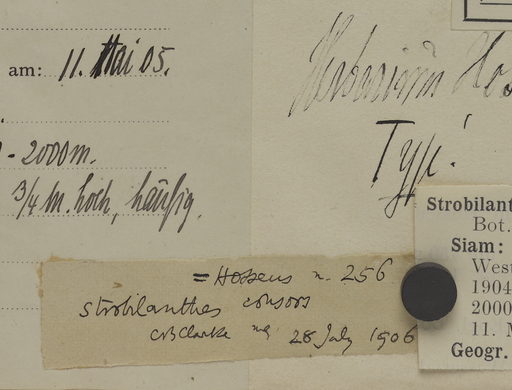 am: 11. Mai 05.
- 2000 m.
3/4 m. hoch, häufig.
Herbarium Ho
Type!
Strobilant
Bot.
Siam:
West
1904
2000
11. M
Geogr.
= Hosseus n. 256
Strobilanthes consors
CBClarke 28 July 1906